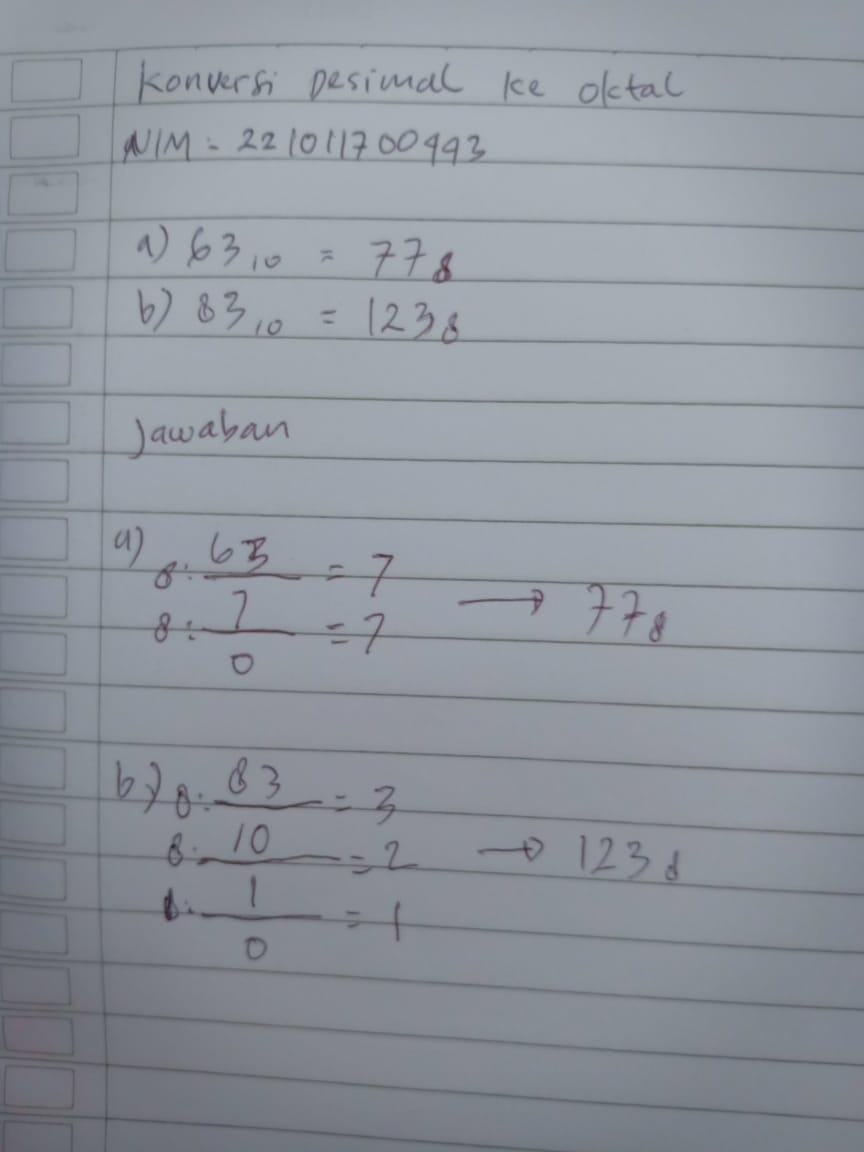 Konversi Desimal ke oktal
NIM = 221011700993
a) 63₁₀ = 77₈
b) 83₁₀ = 123₈
Jawaban
a)
8: 63 = 7
8: 7 = 7 → 77₈
0
b) 8: 83 = 3
8: 10 = 2 → 123₈
8: 1 = 1
0